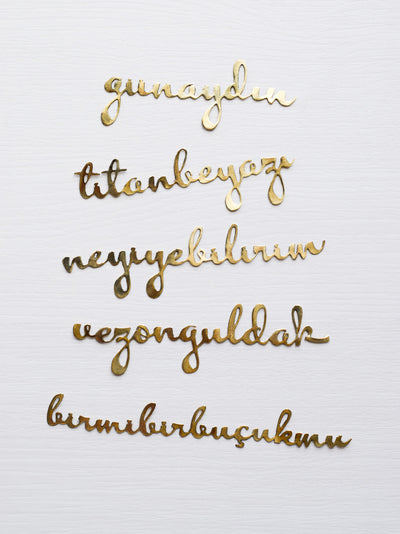 gunaydın
titanbeyazı
neyiyebilirim
vezonguldak
birmibirbuçukmu